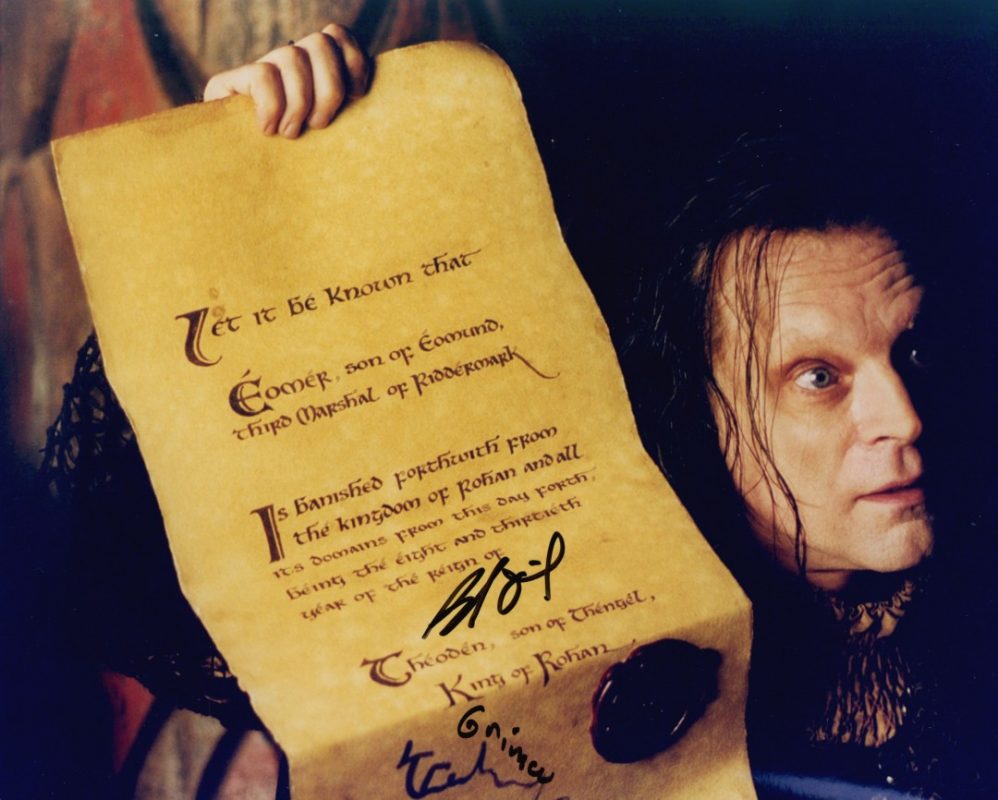 Let it be known that
Éomér, son of Éomund,
third Marshal of Riddermark
Is banished forthwith from
the kingdom of Rohan and all
its domains from this day forth,
being the eight and thirtieth
year of the reign of
Théodén, son of Thengel,
King of Rohan
Grimer